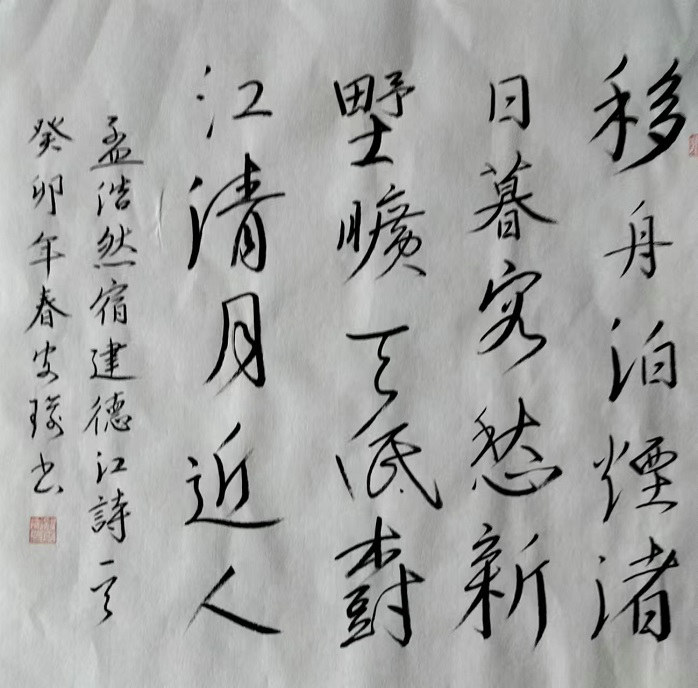 移舟泊煙渚
日暮客愁新
野曠天低樹
江清月近人
孟浩然宿建德江詩一首
癸卯年春安瑤書